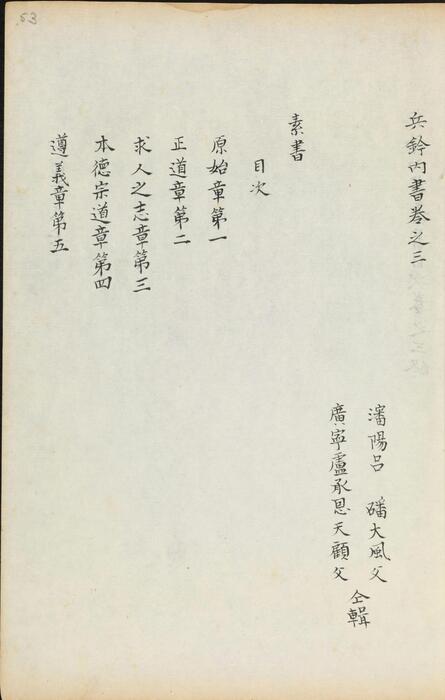 兵鈐內書卷之三
瀋陽呂 磻大風父
廣寧盧承恩天顧父
仝輯
素書
目次
原始章第一
正道章第二
求人之志章第三
本德宗道章第四
遵義章第五
53